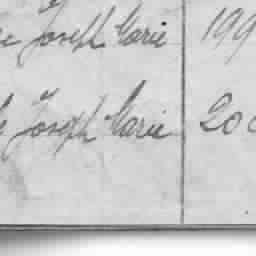 Joseph Marie 199
Joseph Marie 200